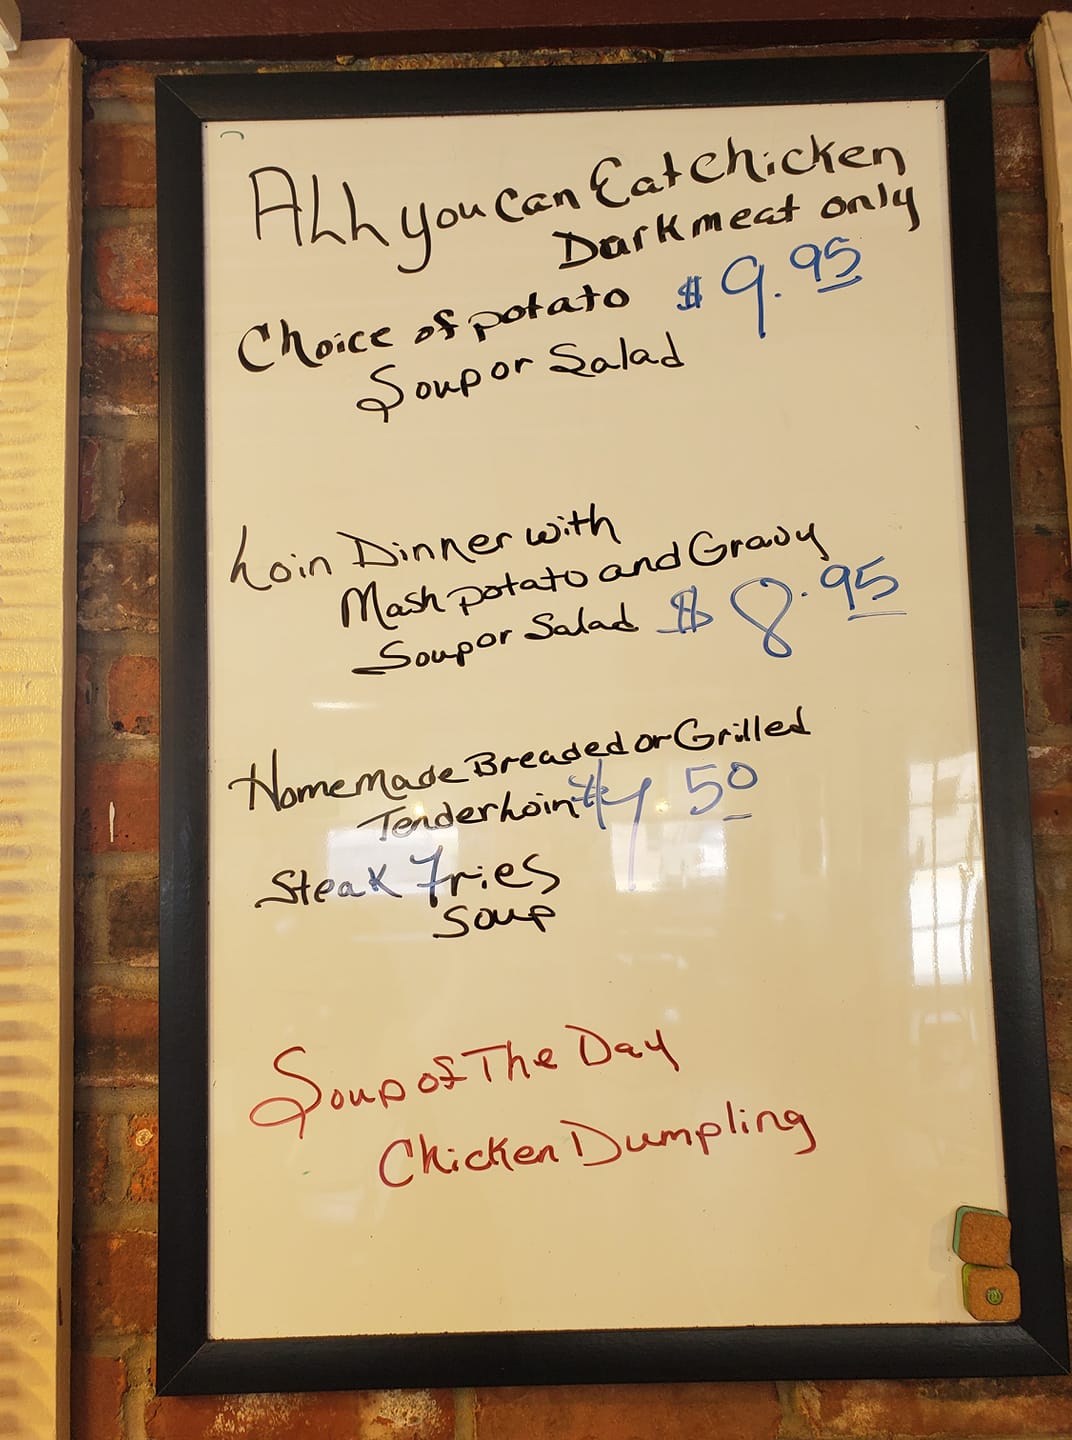 All you Can Eat Chicken
Dark meat only
Choice of potato $9.95
Soup or Salad
Loin Dinner with
Mash potato and Gravy
Soup or Salad $8.95
Homemade Breaded or Grilled
Tenderloin 50
Steak Fries
Soup
Soup of The Day
Chicken Dumpling